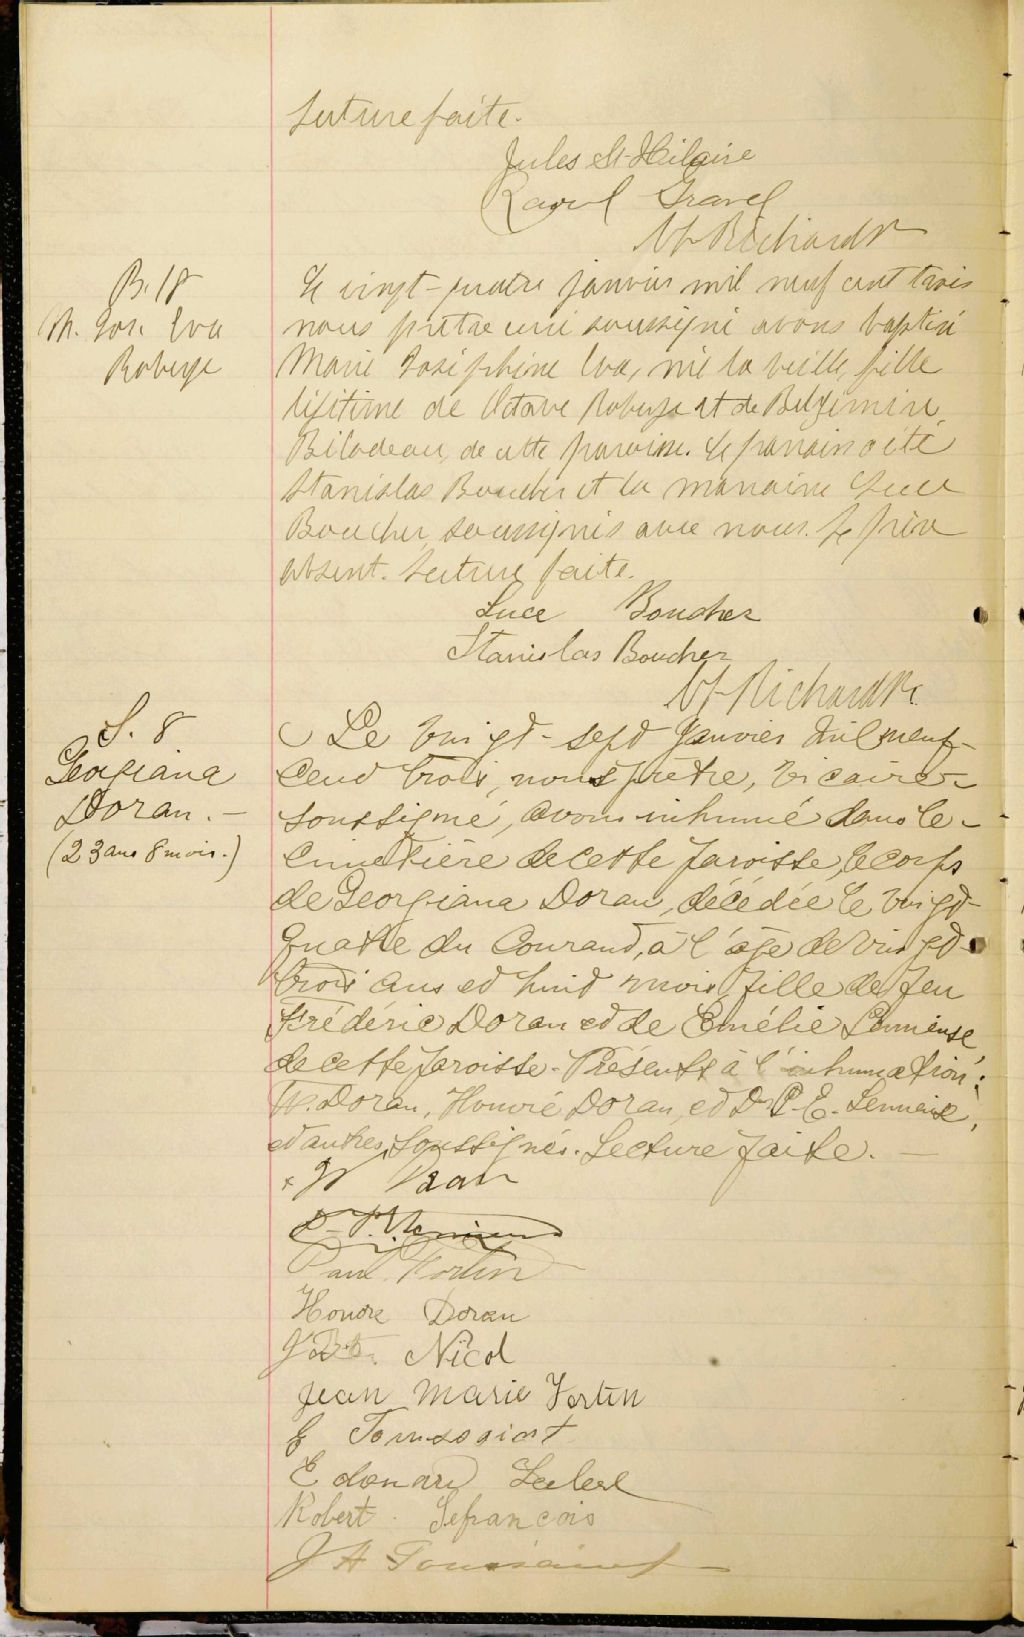 Lecture faite.
Jules St-Hilaire
Raoul Gravel
Richard Ptr
B. 18
M. Jos. Eva
Roberge
Le vingt-quatre janvier mil neuf cent trois
nous prêtre curé soussigné avons baptisé
Marie Joséphine Eva, née la veille, fille
légitime de Octave Roberge et de Belzémire
Bilodeau, de cette paroisse. Le parrain a été
Stanislas Boucher et la marraine Luce
Boucher, soussignés avec nous. Le père
absent. Lecture faite.
Luce Boucher
Stanislas Boucher
Richard Ptr.
S. 8
Georgiana
Doran. -
(23 ans 8 mois.)
Le vingt-sept Janvier mil neuf-
cent trois, nous prêtre, vicaire-
soussigné, avons inhumé dans le-
cimetière de cette paroisse, le corps
de Georgiana Doran, décédée le vingt-
quatre du courant, à l'âge de vingt-
trois ans et huit mois, fille de feu
Frédéric Doran et de Emélie Lemieux
de cette paroisse. Présents à l'inhumation:
W. Doran, Honoré Doran, et D P. E. Lemieux,
et autres, soussignés. Lecture faite. -
x W Doran
Paul Fortin
Honore Doran
J Bte. Nicol
Jean Marie Fortin
E Toussaint
Edouard Leclerc
Robert Lefrancois
J A Toussaint